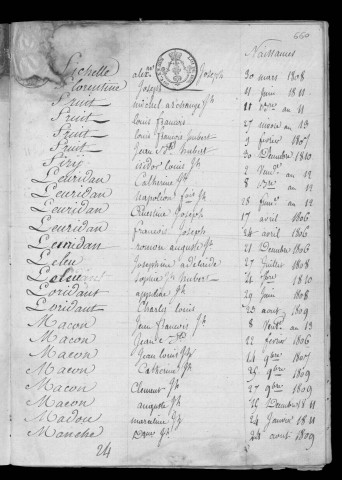 660
Naissances
Lechelle alex.re Joseph 30 mars 1808
florentine Joseph 11 juin 1811
Pruit michel archange Jh 11 an 11
Pruit louis francois an 13
Pruit louis francois hubert 9 fevrier 1807
Pruit Jean Bte hubert 30 Decembre 1810
isidor louis Jh an 12
Leuridan Catherine Jh 8 an 11
Leuridan napoleon Jh 28 an 12
Leuridan Celestine Joseph 17 avril 1806
Leuridan francois Joseph 24 avril 1806
Leuridan romain auguste Jh 21 Decembre 1806
Leleu Josephine adelaide 27 Juillet 1808
Leleu Sophie Jh hubert 4 1810
Loridant Jh 29 Juin 1808
Loridant Charles louis 20 aout 1809
Macon Jean francois Jh 8 an 13
Macon Jean Bte Jh 22 fevrier 1806
Macon Jean louis Jh 14 9bre 1807
Macon Catherine Jh 25 9bre 1809
Macon Clement Jh 27 9bre 1809
Macon auguste Jh 15 Decembre 1811
Madou marceline Jh 24 Janvier 1811
Manche Jh 24 aout 1809
24